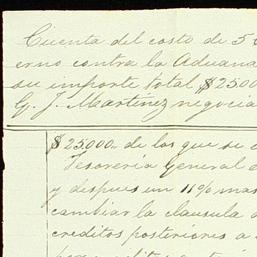 Cuenta del costo de 5
erno contra la Aduana
su importe total $2500
G. J. Martinez negocia
$25000 - de los que se
Tesorería General
y despues un 11% mas
cambiar la clausula
creditos posteriores a